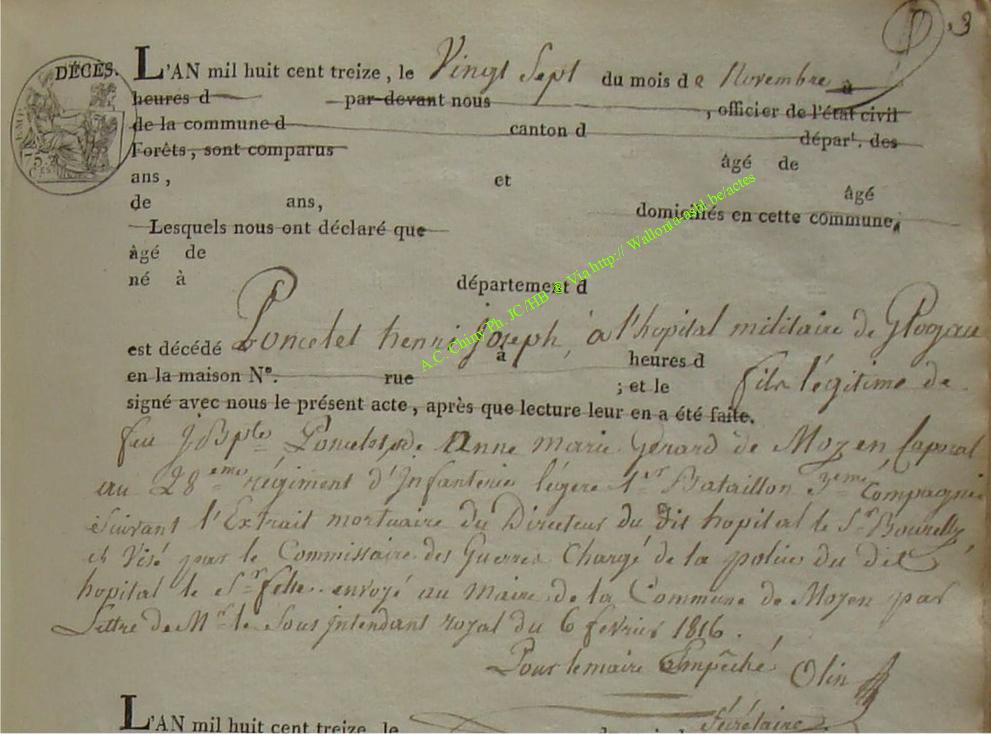 3
DÉCÈS. L'AN mil huit cent treize, le Vingt Sept du mois de Novembre à
heures d par-devant nous , officier de l'état civil
de la commune d canton d dépar^t. des
Forêts, sont comparus âgé de
ans, et âgé
de ans, domiciliés en cette commune,
Lesquels nous ont déclaré que
âgé de
né à département d
est décédé Poncelet henri Joseph, à l'hopital militaire de Glogau
à heures d
en la maison N°. rue ; et le fils légitime de
signé avec nous le présent acte, après que lecture leur en a été faite.
feu J Bpte Poncelet de Anne marie Gérard de Moyen Caporal
au 28eme régiment d'Infanterie légere 1er Bataillon 3eme Compagnie
Suivant l'Extrait mortuaire du Directeur du dit hopital le Sr Bourelly
et Visé par le Commissaire des Guerres Chargé de la police du dit
hopital le Sr felte envoyé au Maire de la Commune de Moyen par
Lettre de Mr le Sous intendant royal du 6 fevrier 1816.
Pour le maire Empêché Olin
Secrétaire
L'AN mil huit cent treize, le du mois d
A.C. Chiny Ph. JC/HB @ Via http:// Wallonia-asbl.be/actes